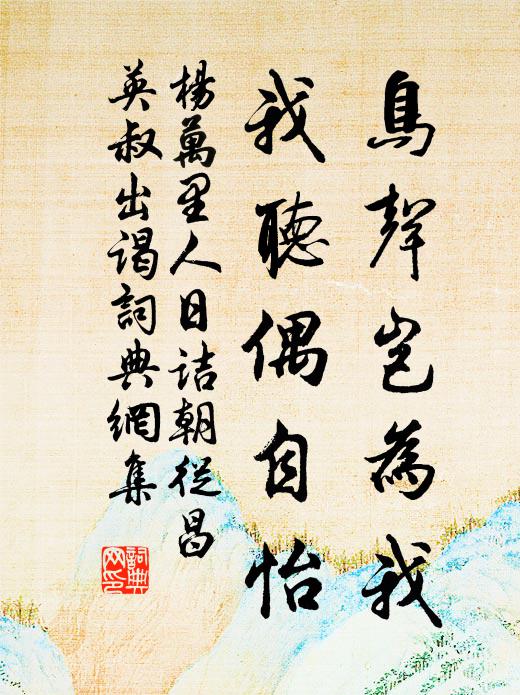 鳥聲豈為我
我聽偶自怡
楊萬里人日詰朝從昌
英叔出谒詞典網集
詞典
网印